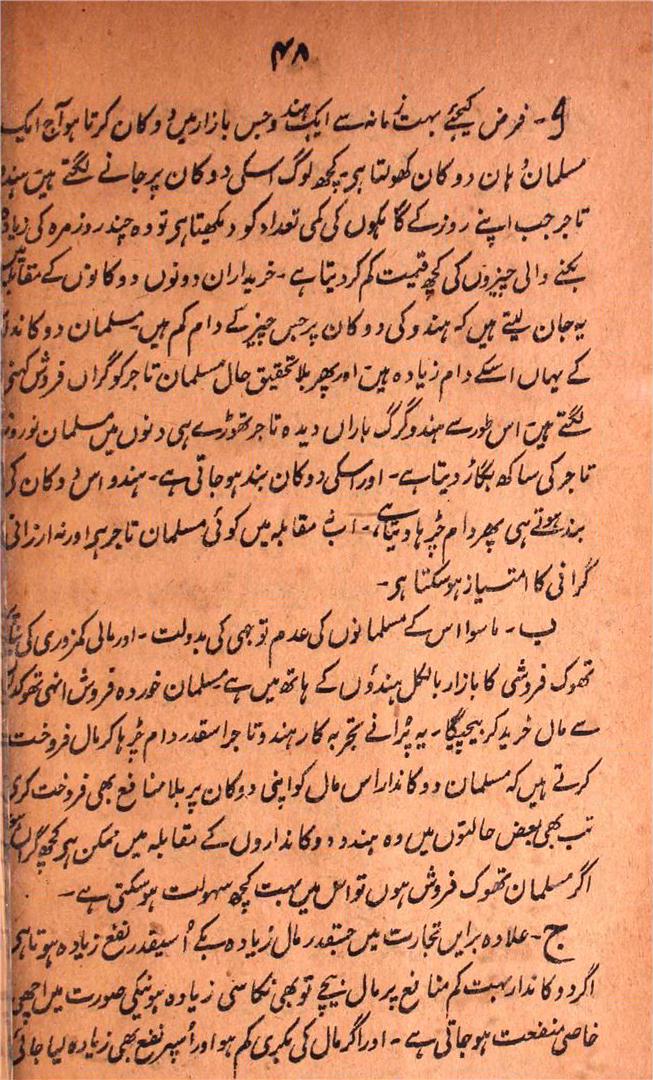 ۴۸
و۔ فرض کیجئے بہت زمانہ سے ایک ہندو جس بازار میں دوکان کرتا ہو آج ایک
مسلمان وہان دوکان کھولتا ہی۔ کچھ لوگ اسکی دوکان پر جانے لگتے ہین
تاجر جب اپنے روز کے گاہکوں کی کمی تعداد کو دیکھتا ہی تو وہ چند روزمرہ کی
بکنے والی چیزوں کی کچھ قیمت کم کر دیتا ہے۔ خریداران دونوں دوکانوں کے
یہ جان لیتے ہیں کہ ہندو کی دوکان پر جس چیز کے دام کم ہیں مسلمان
کے یہاں اسکے دام زیادہ ہین اور پھر بلا تحقیق حال مسلمان تاجر کو گراں فروش
لگتے ہین اس طور سے ہندو گرگ باراں دیدہ تاجر تھوڑے ہی دنوں میں مسلمان
تاجر کی ساکھ بگاڑ دیتا ہے۔ اور اسکی دوکان بند ہو جاتی ہے۔ ہندو اس دوکان
بند ہوتے ہی پھر دام چڑہا دیتا ہے،۔ اب مقابلہ میں کوئی مسلمان تاجر ہی اور نہ ارزانی
گرانی کا امتیاز ہو سکتا ہی۔
ب۔ ماسوا اس کے مسلمانوں کی عدم توجہی کی بدولت۔ اور مالی کمزوری کی
تھوک فروشی کا بازار بالکل ہندؤں کے ہاتھ میں ہے مسلمان خوردہ فروش انہی
سے مال خرید کر بیچیگا۔ یہ پُرانے تجربہ کار ہندو تاجر اسقدر دام چڑہا کر مال فروخت
کرتے ہیں کہ مسلمان دوکاندار اس مال کو اپنی دوکان پر بلا منافع بھی فروخت
تب بھی بعض حالتوں میں وہ ہندو دوکانداروں کے مقابلہ میں ممکن ہی کچھ
اگر مسلمان تھوک فروش ہوں تو اس میں بہت کچھ سہولت ہو سکتی ہے۔
ج۔ علاوہ برایں تجارت میں جسقدر مال زیادہ بکے اُسیقدر نفع زیادہ ہوتا ہی
اگر دوکاندار بہت کم منافع پر مال بیچے تو بھی نکاسی زیادہ ہونیکی صورت میں اچھی
خاصی منفعت ہو جاتی ہے۔ اور اگر مال کی بکری کم ہو اور اُسپر نفع بھی زیادہ لیا